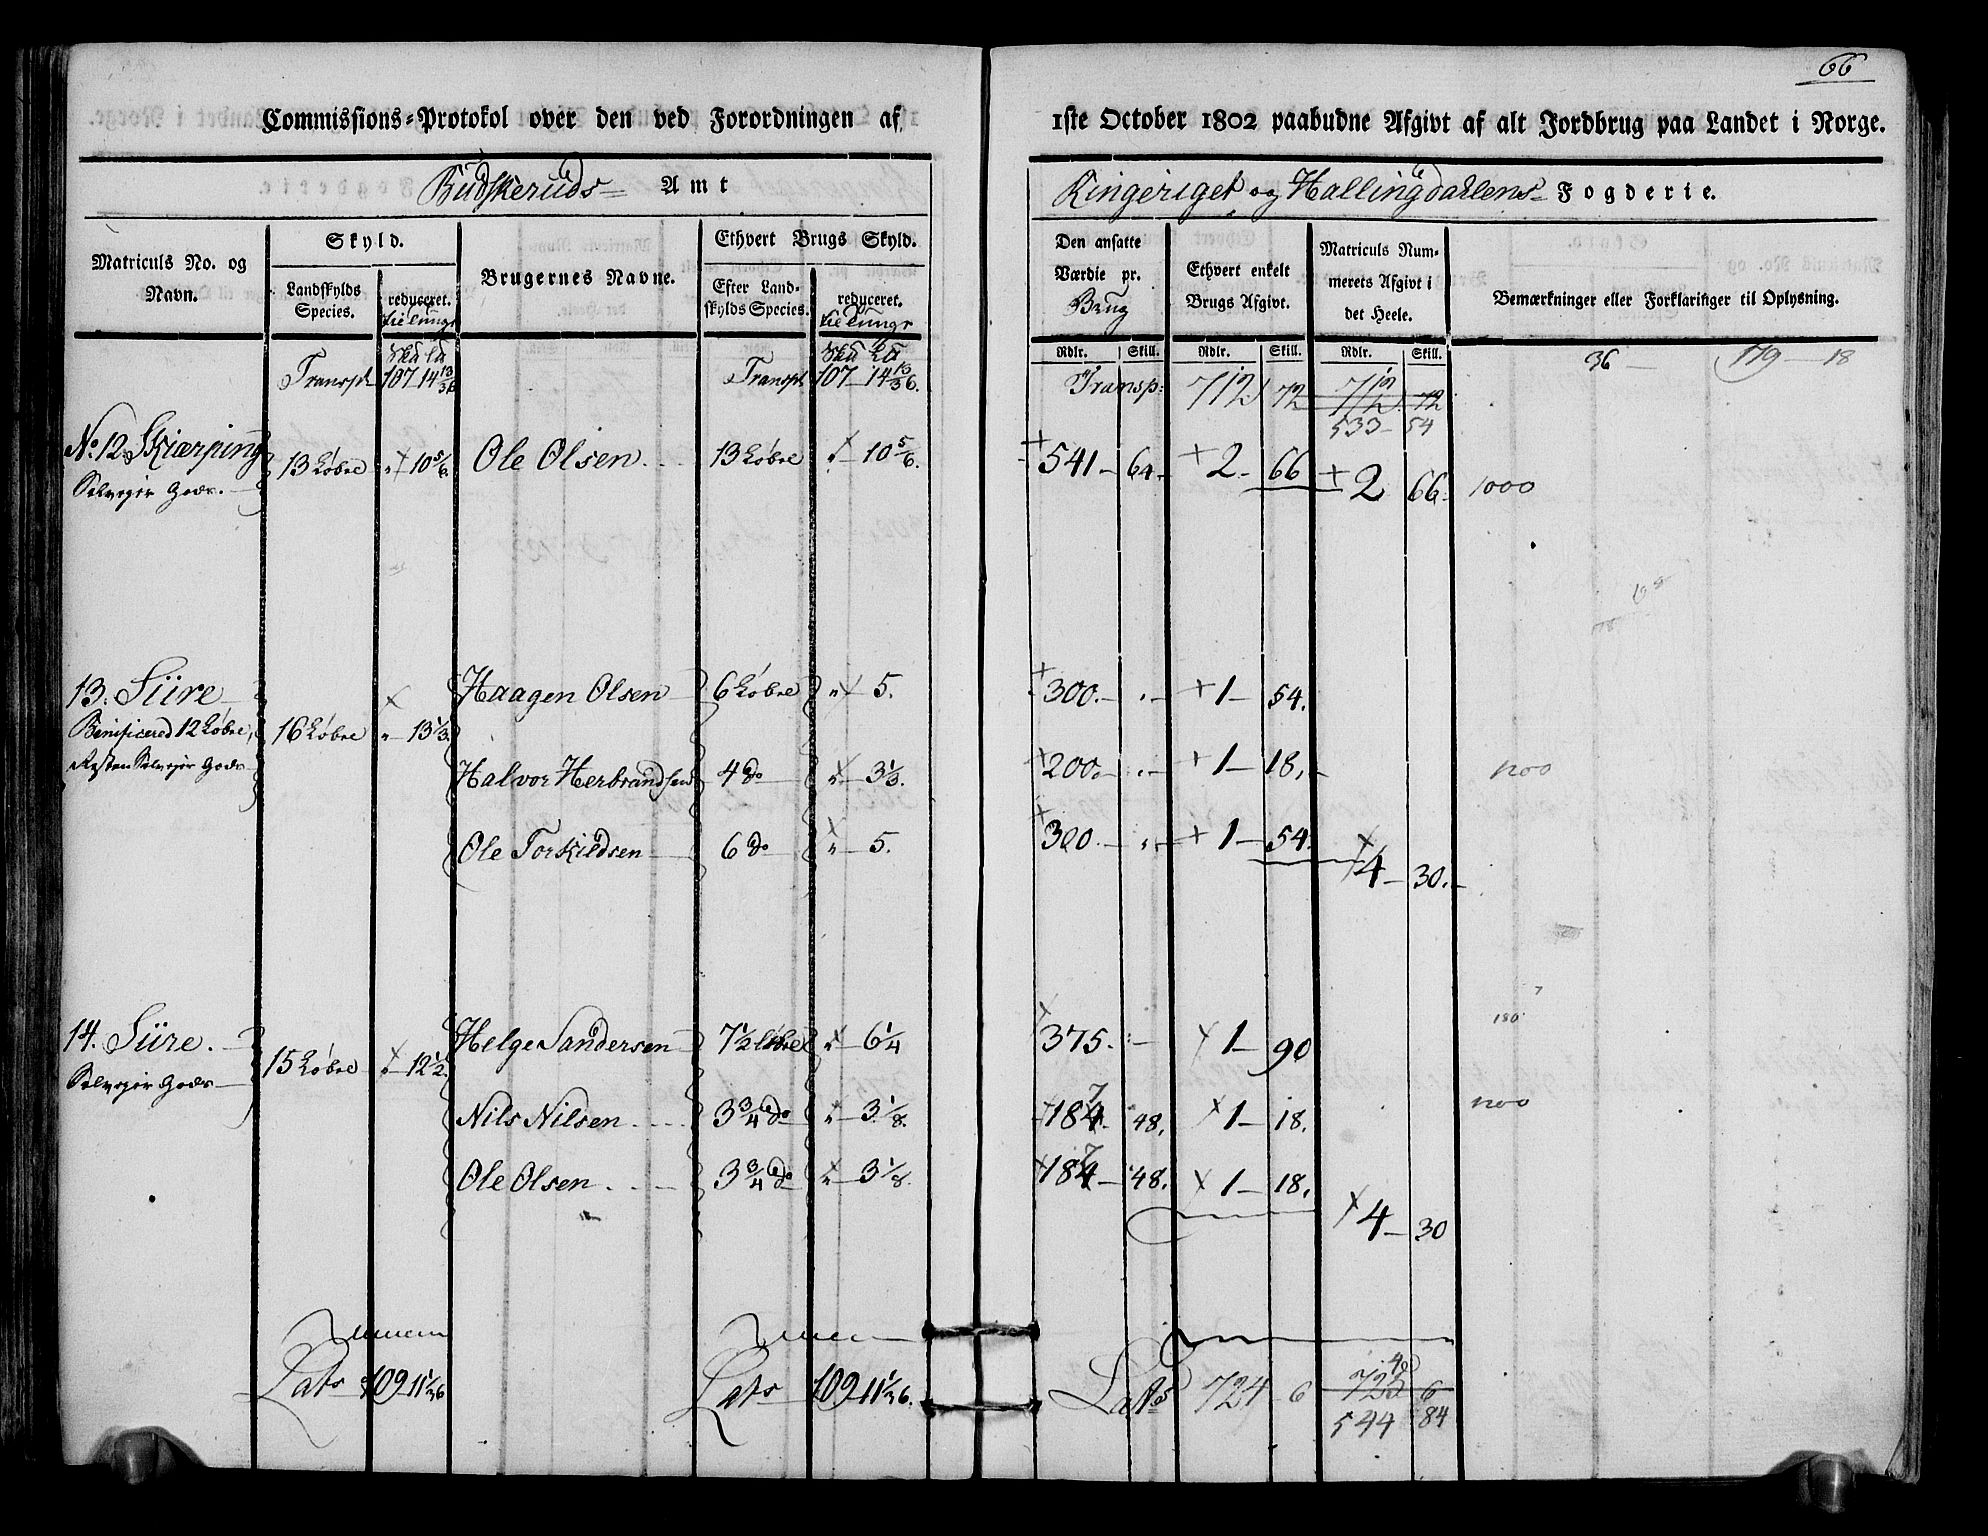 66
Commissions-Protokol over den ved Forordningen af 1ste October 1802 paabudne Afgivt af alt Jordbrug paa Landet i Norge.
Budskeruds Amt
Ringeriget og Hallingdalens Fogderie.
Matriculs No. og Navn.
Skyld.
Landskylds Species.
reduceret.
Brugernes Navne.
Ethvert Brugs Skyld.
Efter Landskylds Species.
reduceret.
Den ansatte Værdie pr. Brug
Ethvert enkelt Brugs Afgivt.
Matriculs Nummerets Afgivt i det Heele.
Bemærkninger eller Forklaringer til Oplysning.
Rdlr. Skill. Rdlr. Skill. Rdlr. Skill.
Transp. 107 14 13/36 Transp. 107 - 14 13/36. Transp: 712 72 712 72 36 179 - 18
533 - 54
No. 12. Skiærping 13 Løbre " 10 5/6 Ole Olsen. 13 Løbre " - 10 5/6. 541 - 64. 2 - 66 2 66. 1000
Selveyer Gods.
13. Siire Haagen Olsen 6 Løbre " - 5. 300. - " - 1 - 54.
Benificered 12 Løbre, 16 Løbre " - 13 1/3.
Resten Selveyer Gods Halvor Herbrandsen 4 do " - 3 1/3. 200. - " - 1 - 18. 1200
Ole Torkildsen 6 do " - 5. 300. - " - 1 - 54.
4 - 30.
14. Siire. Helge Sandersen 7 1/2 Løbre " - 6 1/4 375. 1 - 90 180
Selveyer Gods 15 Løbre " - 12 1/2.
Nils Nilsen 3 3/4 do " - 3 1/8. 187. 48. 1 - 18. 1200
Ole Olsen 3 3/4 do " - 3 1/8. 187 - 48. 1 - 18.
4 - 30
Lats 109 11 1/36 Lats 109 11 1/36. Lats 724 6 6
544 84